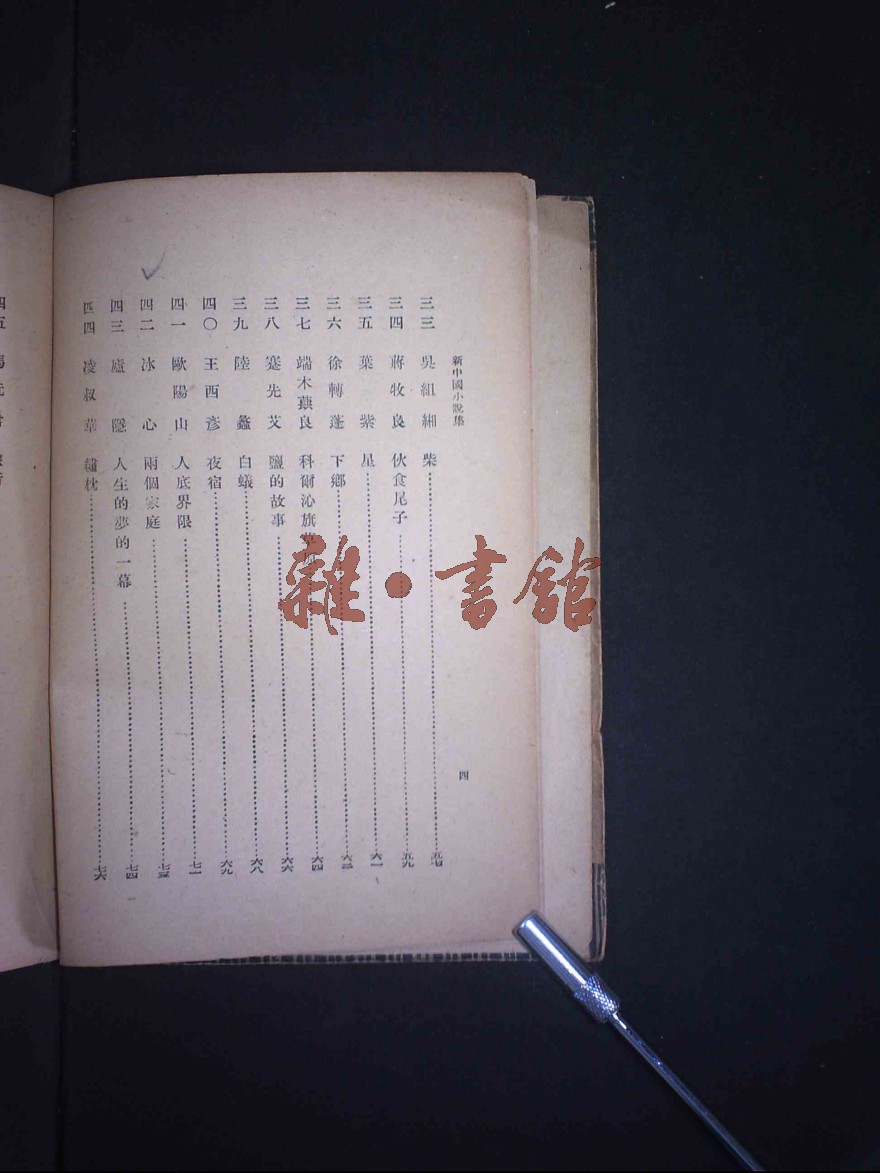 新中國小說集
四
三三 吳組緗 柴……五七
三四 蔣牧良 伙食尾子……五九
三五 葉紫 星……六一
三六 徐轉蓬 下鄉……六三
三七 端木蕻良 科爾沁旗……六四
三八 蹇先艾 鹽的故事……六六
三九 陸蠡 白蟻……六八
四〇 王西彥 夜宿……六九
四一 歐陽山 人底界限……七一
四二 冰心 兩個家庭……七三
四三 廬隱 人生的夢的一幕……七四
四四 凌叔華 繡枕……七六
四五
雜·書館